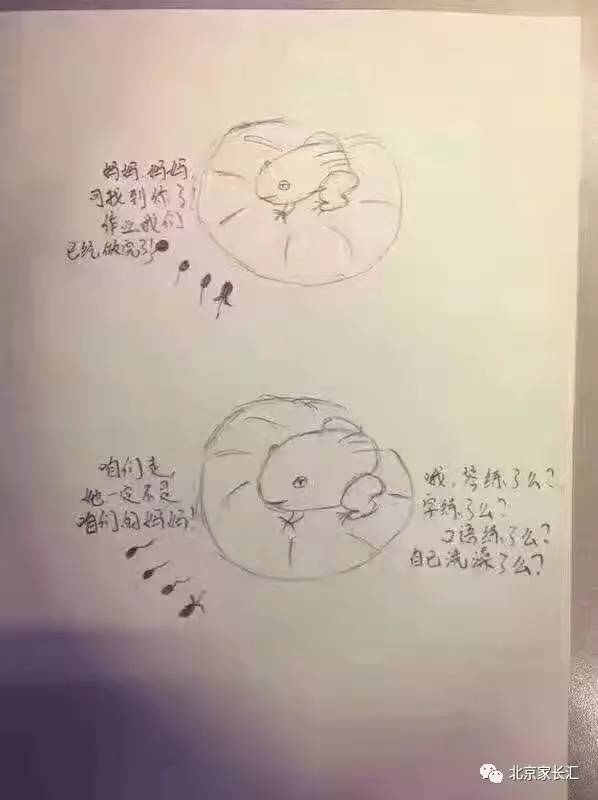 妈妈,妈妈,
可找到你了!
作业我们
已经做完了!
哦,琴练了么?
字练了么?
口语练了么?
自己洗澡了么?
咱们走,
她一定不是
咱们的妈妈!
北京家长汇